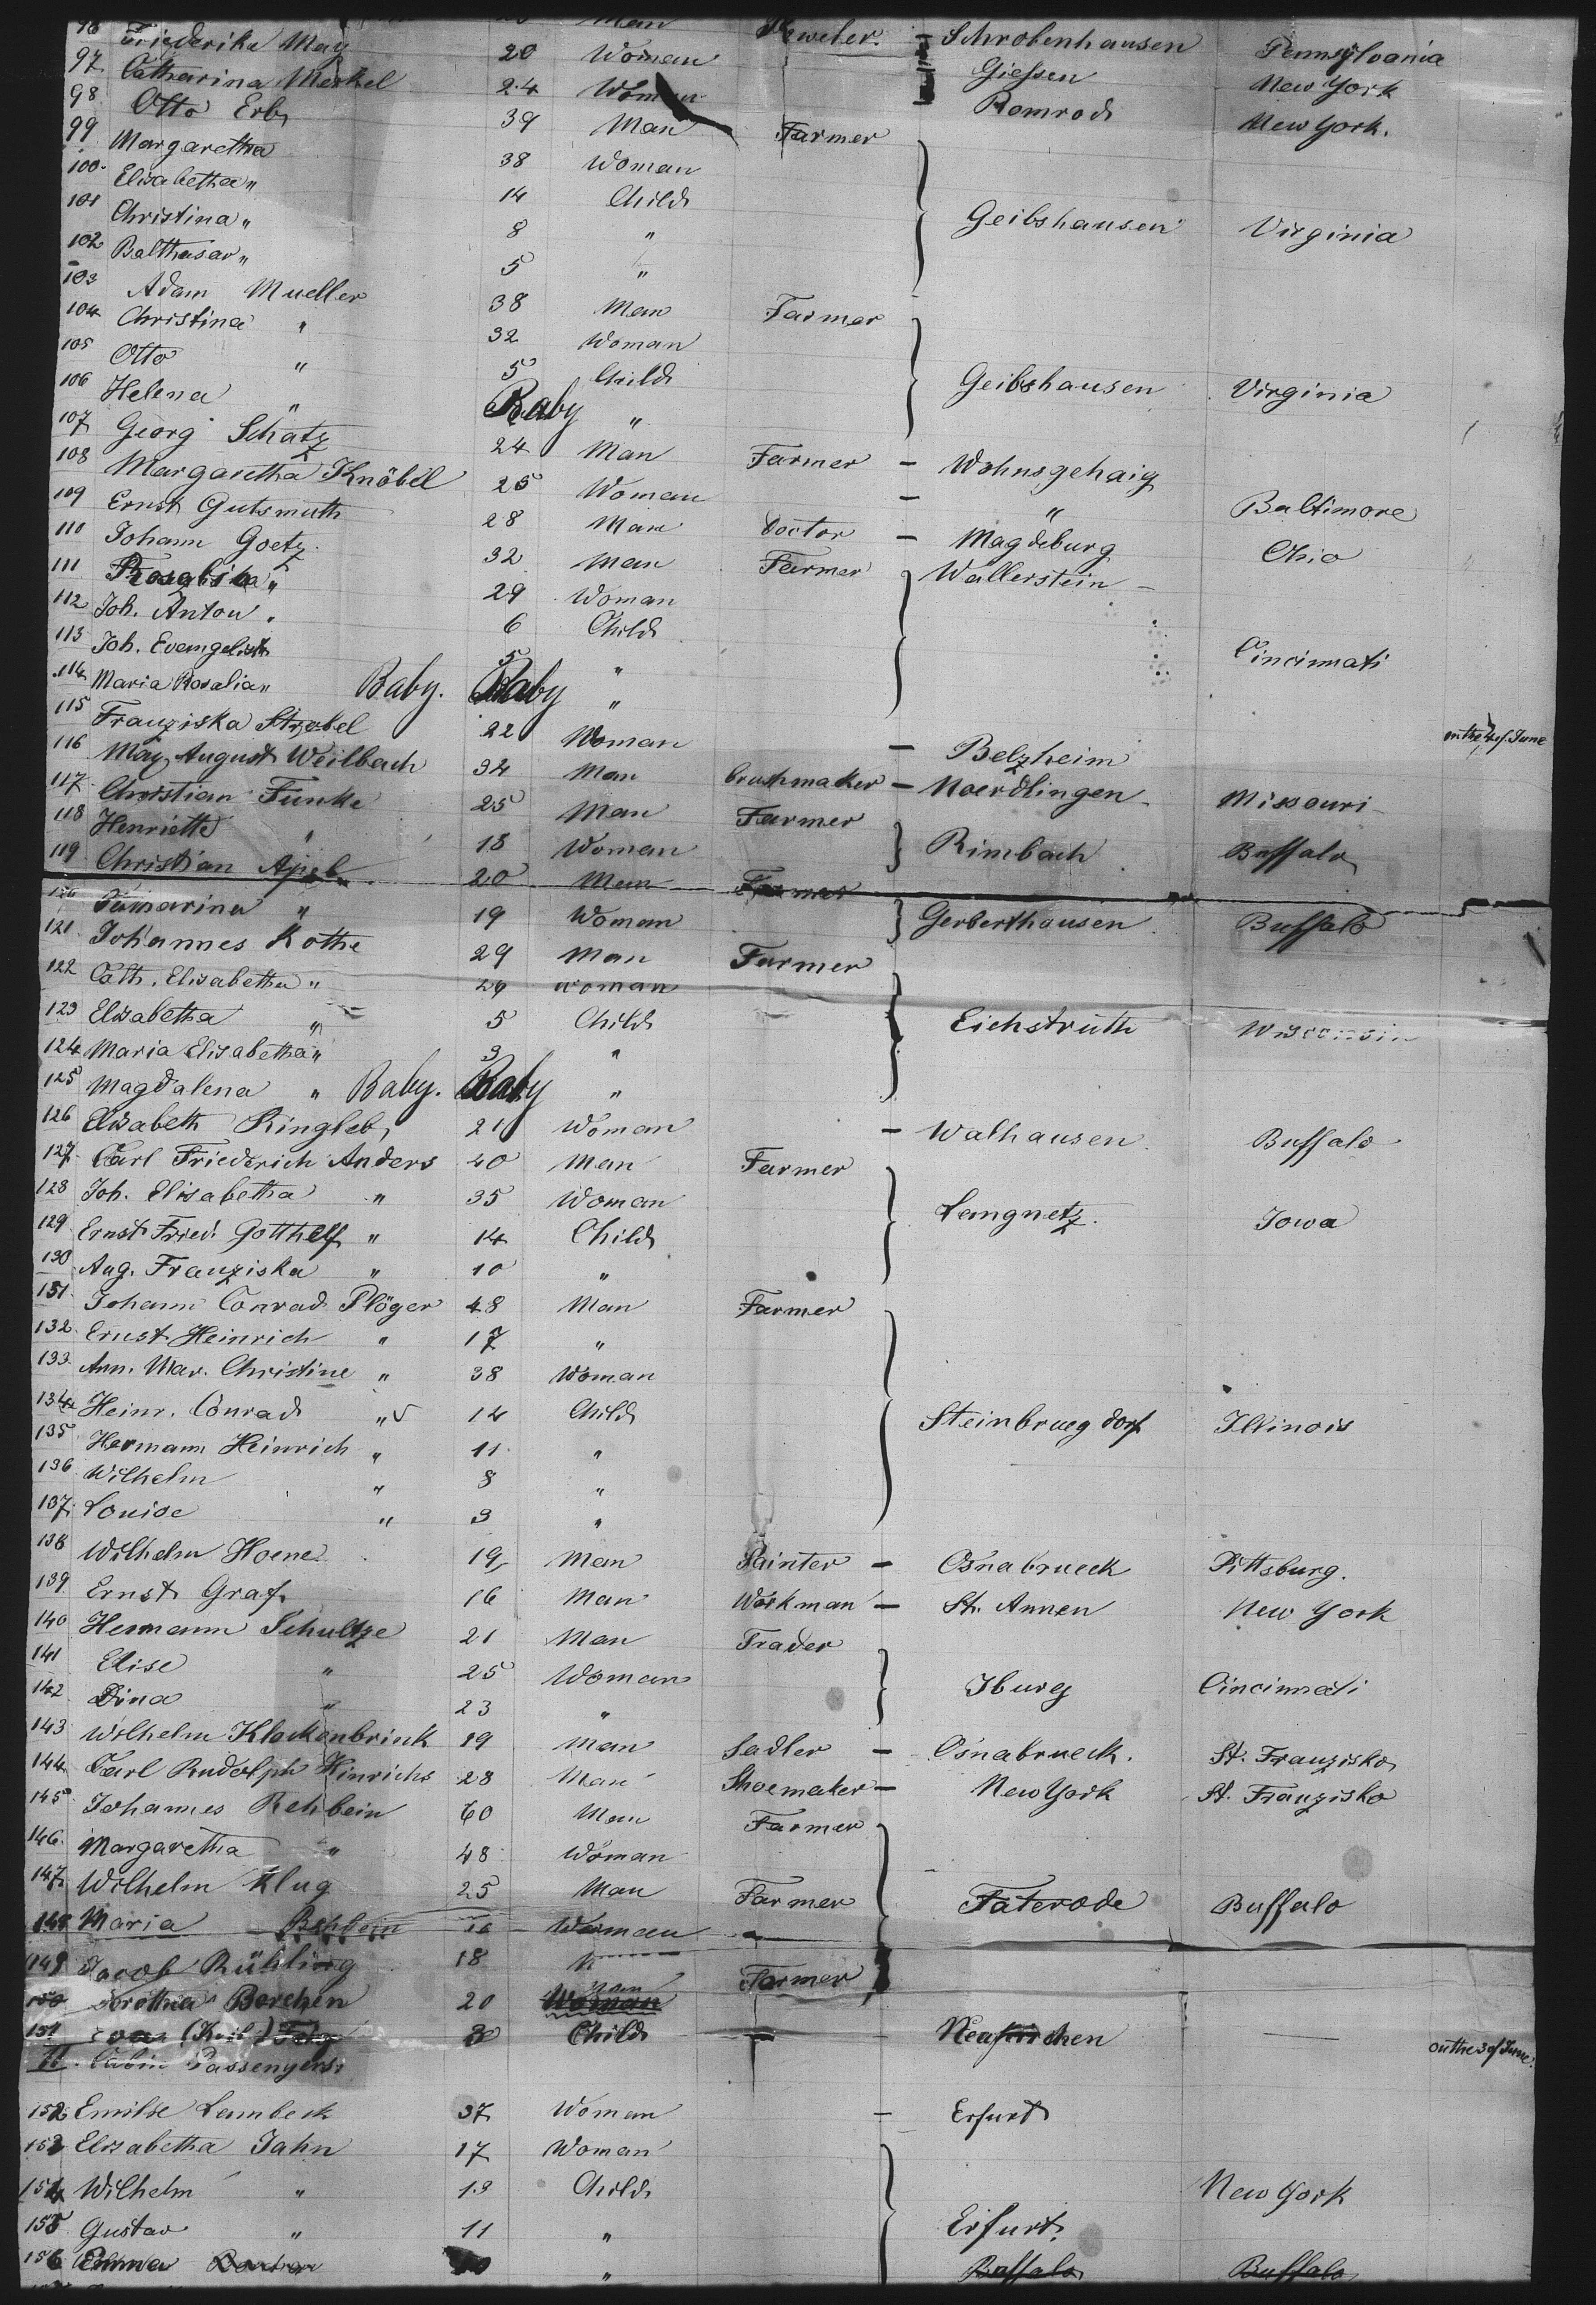 96 Friederika May 20 Woman Schrobenhausen Pennsylvania
97 Catharina Merkel 24 Woman Giessen New York
98 Otto Erb 39 Man Farmer Romrod New York.
99 Margaretha 38 Woman
100 Elisabetha " 14 Child
101 Christina " 8 " Geibshausen Virginia
102 Balthasar " 5 "
103 Adam Mueller 38 Man Farmer
104 Christina " 32 Woman
105 Otto " 5 Child
106 Helena " Baby " Geibshausen Virginia
107 Georg Schatz 24 Man Farmer - Wohnsgehaig
108 Margaretha Knöbel 25 Woman - " Baltimore
109 Ernst Gutsmuth 28 Man Doctor - Magdeburg Ohio
110 Johann Goetz 32 Man Farmer Wallerstein -
111 " 29 Woman
112 Joh. Anton " 6 Child
113 Joh. Evangelist 5 " Cincinnati
114 Maria Rosalia " Baby. Baby "
115 Franziska Strobel 22 Woman - Belzheim on the 4 of June
116 May August Weilbach 32 Man brushmaker - Noerdlingen - Missouri
117 Christian Funke 25 Man Farmer
118 Henriette " 18 Woman Rimbach Buffalo
119 Christian Apel 20 Man Farmer
120 " 19 Woman Gerberthausen Buffalo
121 Johannes Kothe 29 Man Farmer
122 Cath. Elisabetha " 26 Woman
123 Elisabetha " 5 Child Eichstruth Wisconsin
124 Maria Elisabetha " 3 "
125 Magdalena " Baby. Baby "
126 Elisabeth Ringleb 21 Woman - Walhausen Buffalo
127 Carl Friederich Anders 40 Man Farmer
128 Joh. Elisabetha " 35 Woman Langnetz. Iowa
129 Ernst Fried. Gotthelf " 14 Child
130 Aug. Franziska " 10 "
131 Johann Conrad Plöger 48 Man Farmer
132 Ernst Heinrich " 17 "
133 Ann. Mar. Christine " 38 Woman
134 Heinr. Conrad " 14 Child Steinbruegdorf Illinois
135 Hermann Heinrich " 11 "
136 Wilhelm " 8 "
137 Louise " 3 "
138 Wilhelm Hoene 19 Man Painter - Osnabrueck Pittsburg.
139 Ernst Graf 16 Man Workman - St. Annen New York
140 Hermann Schultze 21 Man Trader
141 Elise " 25 Woman Iburg Cincinnati
142 Dina " 23 "
143 Wilhelm Klockenbrink 19 Man Sadler - Osnabrueck. St. Franzisko
144 Carl Rudolph Hinrichs 28 Man Shoemaker - New York St. Franzisko
145 Johannes Rehbein 60 Man Farmer
146 Margaretha " 48 Woman
147 Wilhelm Klug 25 Man Farmer Faterode Buffalo
148 Maria Rehbein 16 Woman
149 Jacob Rühling 18 Farmer
150 Dorothea Borchen 20 Woman
151 Eva (Keil) 3 Child - Neukirchen on the 3 of June.
II. Cabin Passengers
152 Emilie Lambeck 37 Woman - Erfurt
153 Elisabetha Jahn 17 Woman
154 Wilhelm " 13 Child New York
155 Gustav " 11 " Erfurt
156 Emma " Buffalo Buffalo